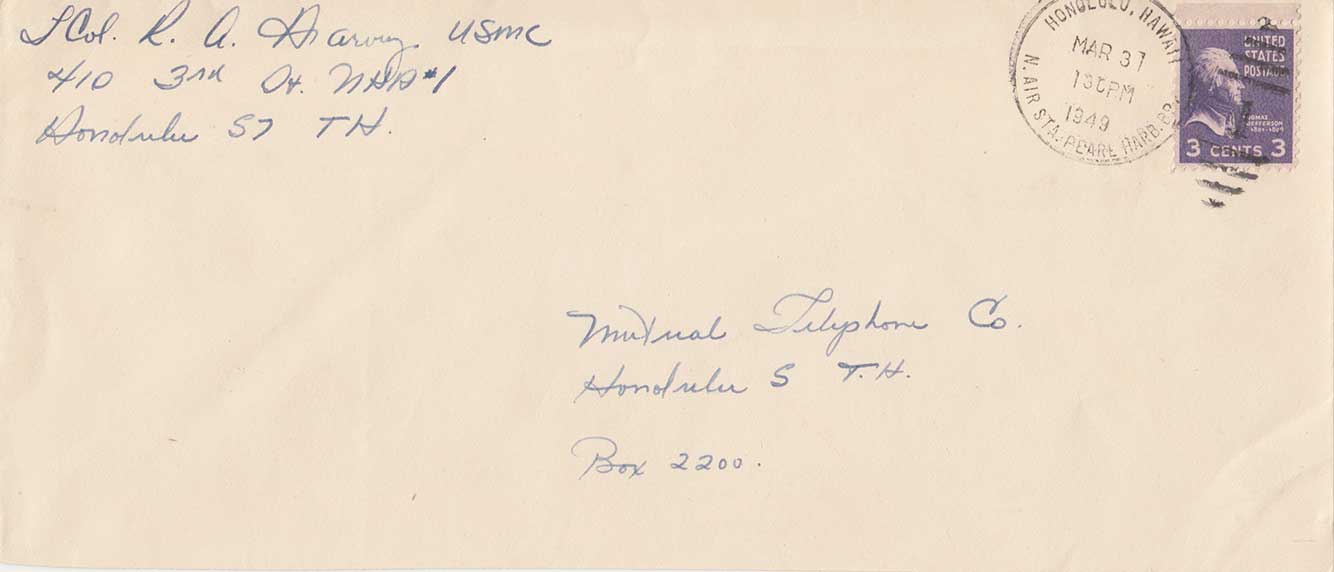 LCol. R. A. Harvey USMC
410 3rd St. NHA #1
Honolulu 57 T H.
HONOLULU, HAWAII
MAR 31
130PM
1949
N. AIR STA. PEARL HARB. BR.
UNITED
STATES
POSTAGE
THOMAS
JEFFERSON
1801-1809
3 CENTS 3
Mutual Telephone Co.
Honolulu S T.H.
Box 2200.